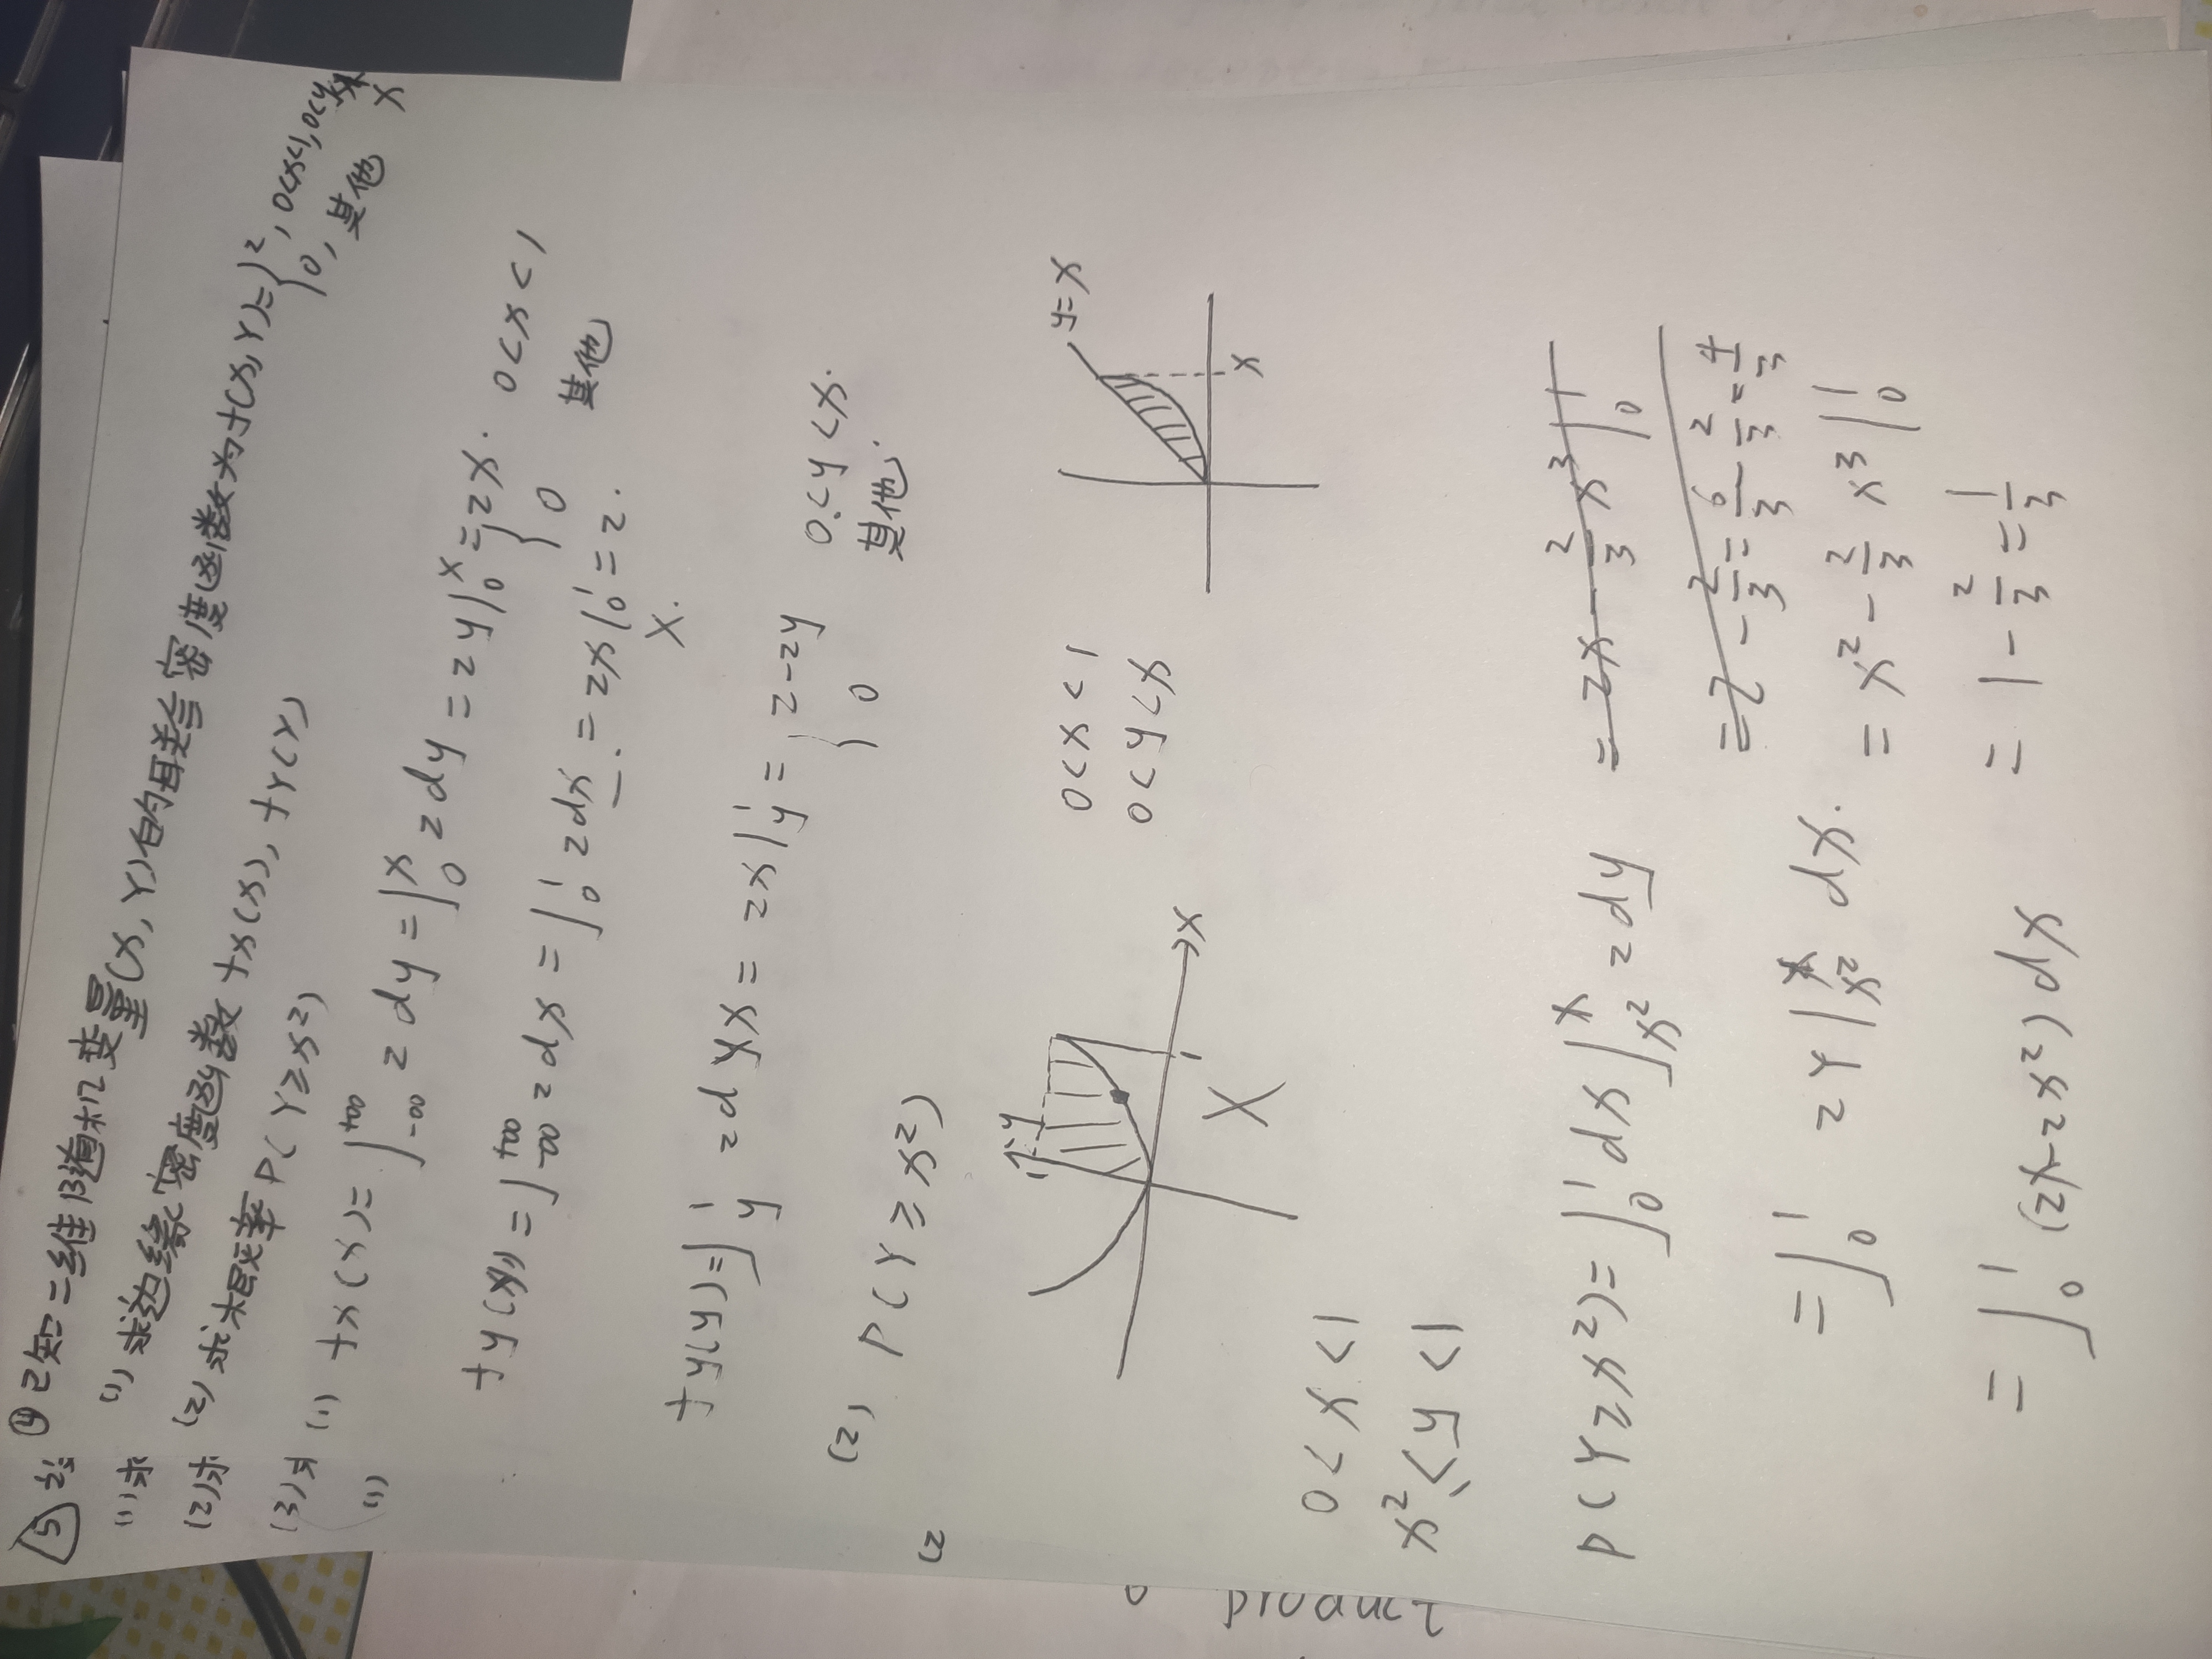 ⑤
④ 已知二维随机变量(X,Y)的联合密度函数为f(x,y)={2, 0<x<1,0<y<x
0, 其他 X
(1)求 (1) 求边缘密度函数 fx(x), fY(Y)
(2)求 (2) 求概率 P(Y≥x²)
(3)求 (1) fx(x)= ∫₋∞⁺∞ 2 dy = ∫₀ˣ 2 dy = 2y|₀ˣ = {2x. 0<x<1
(1) 0 其他
fy(y) = ∫₋∞⁺∞ 2 dx = ∫₀¹ 2 dx. = 2x|₀¹ = 2.
X.
fy(y)= ∫y¹ 2 d x = 2x|y¹ = {2-2y 0<y<x.
0 其他.
(2) P(Y≥x²)
(2
y=x
1 y
0<x<1
0<y<x
x
1
x
X
0<x<1
x²≤y<1
P(Y≥x²)= ∫₀¹dx∫ₓ²ˣ 2 dy = 2x - 2/3 x³|₀¹
= 2 - 2/3 = 6/3 - 2/3 = 4/3
= ∫₀¹ 2Y|ₓ²ˣ dx. = x² - 2/3 x³|₀¹
= ∫₀¹ (2x-2x²) dx = 1 - 2/3 = 1/3
product